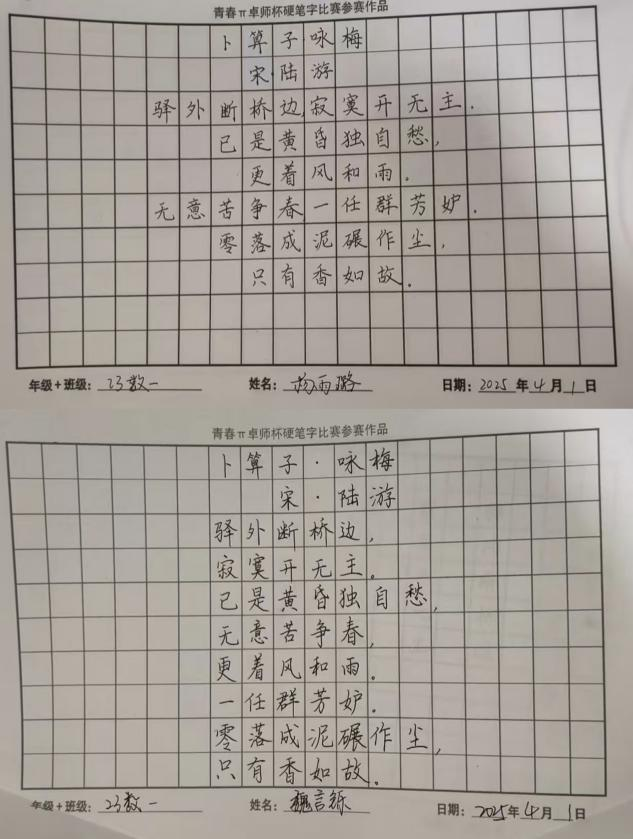 青春π卓师杯硬笔字比赛参赛作品
卜算子·咏梅
宋·陆游
驿外断桥边,寂寞开无主.
已是黄昏独自愁,
更着风和雨。
无意苦争春一任群芳妒.
零落成泥碾作尘,
只有香如故.
年级+班级: 23数一 姓名: 杨雨璐 日期: 2025年4月1日
青春π卓师杯硬笔字比赛参赛作品
卜算子·咏梅
宋·陆游
驿外断桥边,
寂寞开无主。
已是黄昏独自愁,
无意苦争春,
更着风和雨.
一任群芳妒.
零落成泥碾作尘,
只有香如故.
年级+班级: 23数一 姓名: 魏言铄 日期: 2025年4月1日